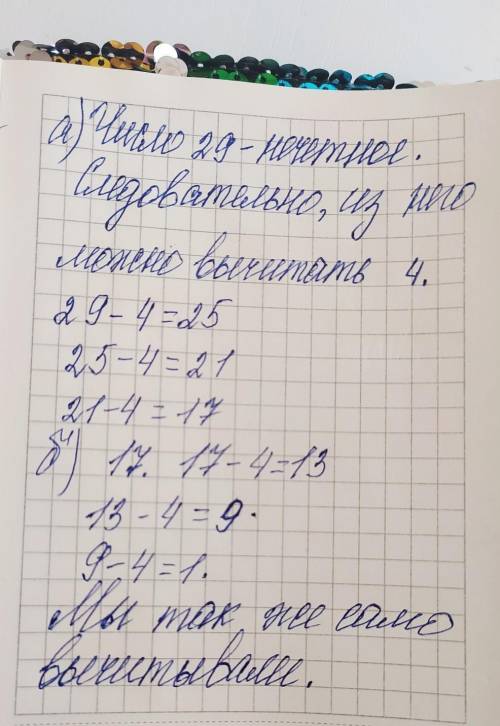 а) Число 29 - нечетное.
Следовательно, из него
можно вычитать 4.
29 - 4 = 25
25 - 4 = 21
21 - 4 = 17
б) 17. 17 - 4 = 13
13 - 4 = 9.
9 - 4 = 1.
Мы так же само
вычитывали.